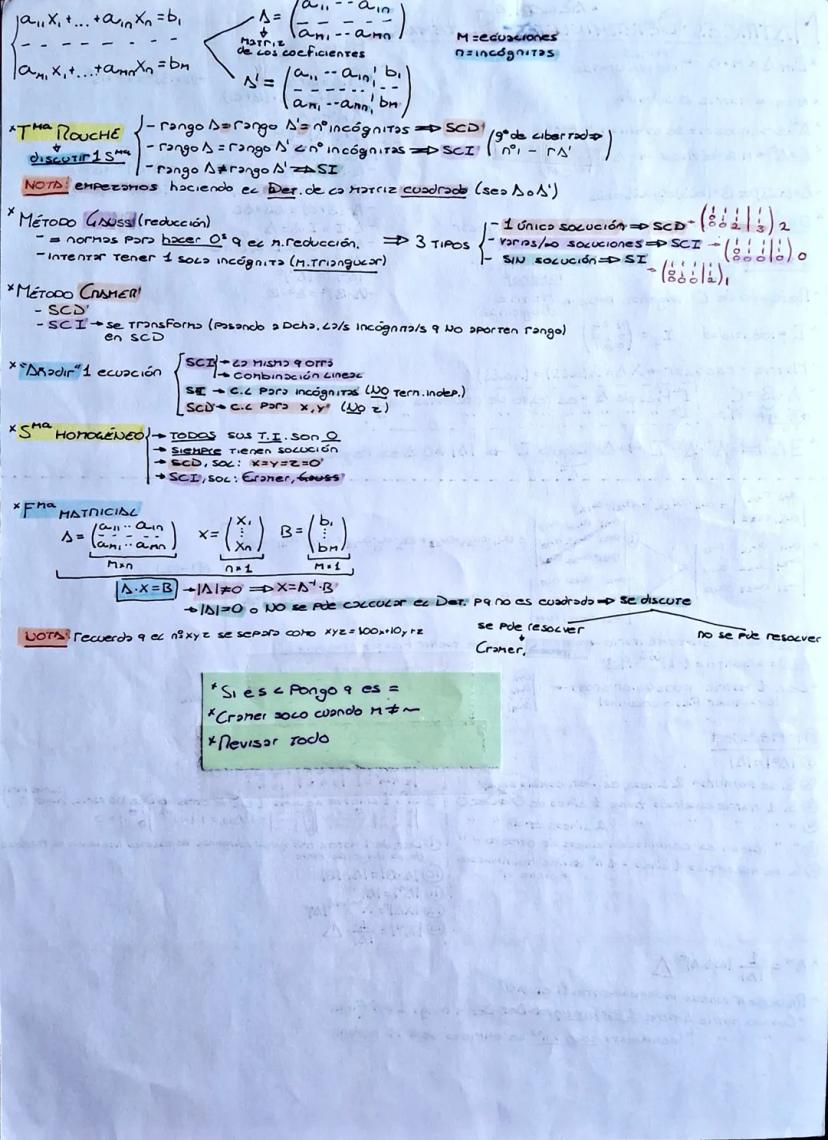 a₁₁X₁+...+a₁nXn=b₁
- - - - - - -
am₁X₁+...+amnXn=bm
A= (a₁₁ -- a₁n
- - - - -
am₁ -- amn)
Matriz de los coeficientes
M=ecuaciones
n=incógnitas
A'= (a₁₁ -- a₁n ¦ b₁
- - - - - - -
am₁ -- amn ¦ bm)
*Tma ROUCHE
↓
discutir 1 Sma
- rango A=rango A'=nº incógnitas ⇒ SCD
- rango A=rango A'<nº incógnitas ⇒ SCI (gº de libertad⇒ nº i - rA')
- rango A≠rango A' ⇒ SI
NOTA: empezamos haciendo el Det. de la Matriz cuadrada (sea A o A')
* MÉTODO GAUSS (reducción)
- = normas para hacer 0s q el m.reducción. ⇒ 3 TIPOS
- Intentar tener 1 sola incógnita (M.Triangular)
- 1 única solución ⇒ SCD
- varias/∞ soluciones ⇒ SCI
- SIN solución ⇒ SI
* MÉTODO CRAMER
- SCD
- SCI → se Transforma (Pasando a Dcha. la/s incógnita/s q NO aporten rango)
en SCD
* "Añadir" 1 ecuación
SCI → La misma q otra
→ Combinación Lineal
SI → C.L para incógnitas (NO Term. Indep.)
SCD → C.L para x,y (No z)
* Sma HOMOGÉNEO
→ TODOS sus T.I. son 0
→ SIEMPRE Tienen solución
→ SCD, sol: x=y=z=0
→ SCI, sol: Cramer, Gauss
* Fma MATRICIAL
A= (a₁₁ .. a₁n
- - - - -
am₁ .. amn)
mxn
X= (X₁
⋮
Xn)
n×1
B= (b₁
⋮
bm)
M×1
A·X=B → |A|≠0 ⇒ X=A⁻¹·B
→ |A|=0 o NO se pde CALCULAR el Det. pq no es cuadrada ⇒ se discute
se pde resolver
↓
Cramer,
no se pde resolver
NOTA: recuerda q el nº xyz se separa como xyz=100x+10y+z
*Si es < Pongo q es =
*Cramer solo cuando M≠~
*Revisar Todo